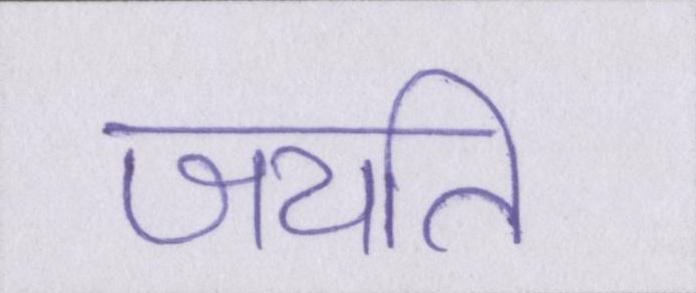 जयति